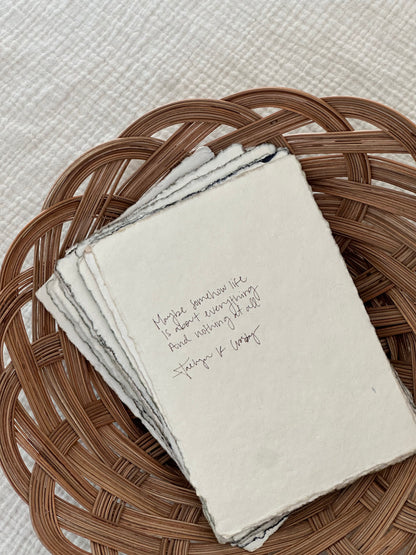 Maybe somehow life
Is about everything
And nothing at all
K